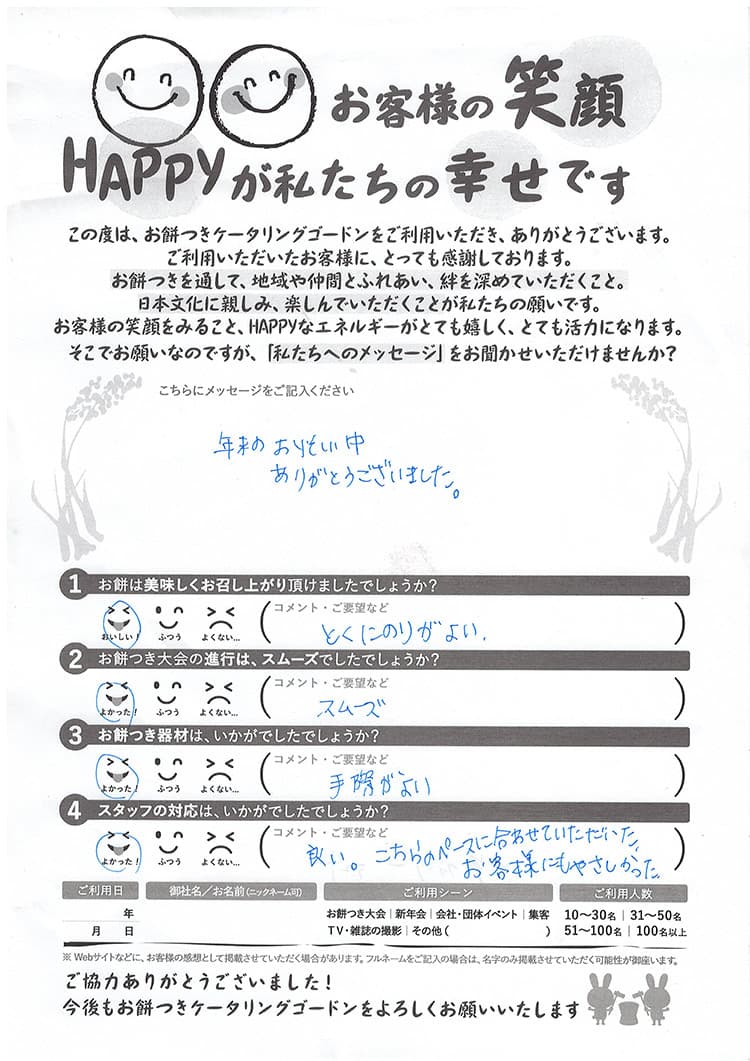 お客様の笑顔
HAPPYが私たちの幸せです
この度は、お餅つきケータリングゴードンをご利用いただき、ありがとうございます。
ご利用いただいたお客様に、とっても感謝しております。
お餅つきを通して、地域や仲間とふれあい、絆を深めていただくこと。
日本文化に親しみ、楽しんでいただくことが私たちの願いです。
お客様の笑顔をみること、HAPPYなエネルギーがとても嬉しく、とても活力になります。
そこでお願いなのですが、「私たちへのメッセージ」をお聞かせいただけませんか?
こちらにメッセージをご記入ください
年末の おいそがしい中
ありがとうございました。
1 お餅は美味しくお召し上がり頂けましたでしょうか?
コメント・ご要望など
おいしい! ふつう よくない…
とくにのりがよい.
2 お餅つき大会の進行は、スムーズでしたでしょうか?
コメント・ご要望など
よかった! ふつう よくない…
スムーズ
3 お餅つき器材は、いかがでしたでしょうか?
コメント・ご要望など
よかった! ふつう よくない…
手際がよい
4 スタッフの対応は、いかがでしたでしょうか?
コメント・ご要望など
よかった! ふつう よくない…
良い。こちらのペースに合わせていただいた、
お客様にもやさしかった
ご利用日 御社名/お名前(ニックネーム可) ご利用シーン ご利用人数
年
月 日
お餅つき大会|新年会|会社・団体イベント|集客
TV・雑誌の撮影|その他( )
10〜30名|31〜50名
51〜100名|100名以上
※Webサイトなどに、お客様の感想として掲載させていただく場合があります。フルネームをご記入の場合は、名字のみ掲載させていただく可能性が御座います。
ご協力ありがとうございました!
今後もお餅つきケータリングゴードンをよろしくお願いいたします